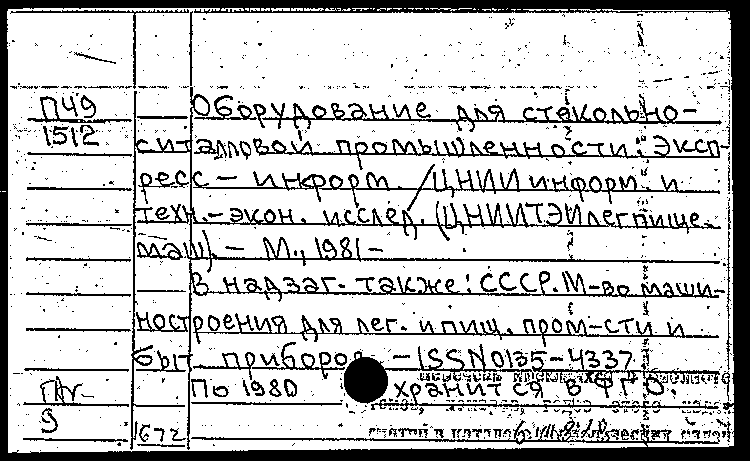 П49 Оборудование для стекольно-
1512 ситалловой промышленности: Эксп-
ресс - информ. / ЦНИИ информ. и
техн.-экон. исслед. (ЦНИИТЭИлегпище-
маш). - М., 1981 -
В надзаг. также: СССР. М-во маши-
ностроения для лег. и пищ. пром-сти и
быт. приборов - ISSN 0135-4337
По 1980 хранится в ФГО.
9
1672